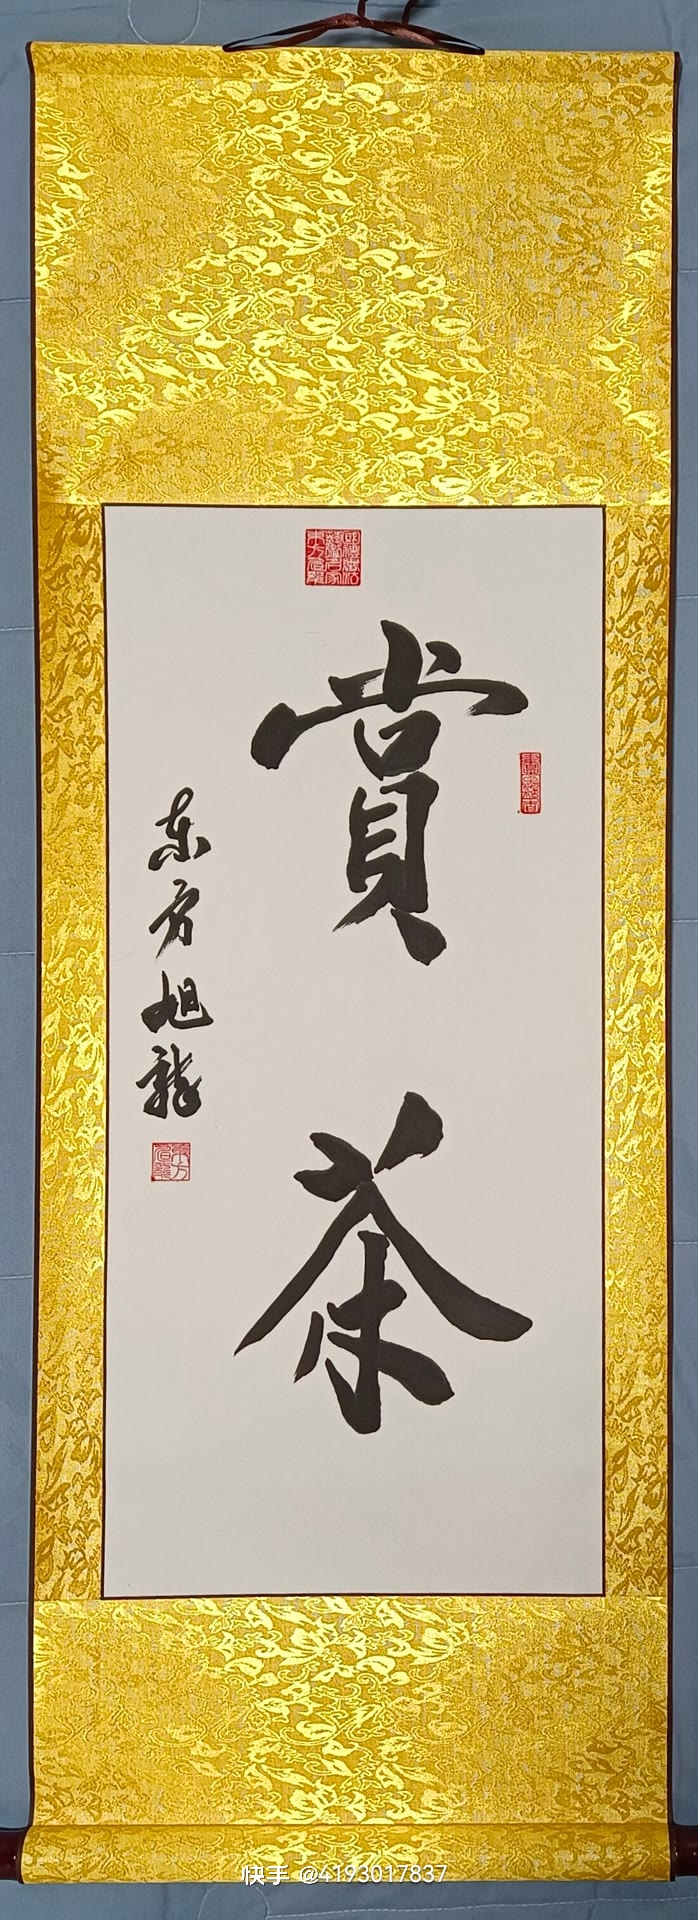 賞茶
东方旭龍
快手 @4193017837